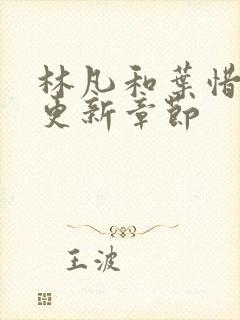 林凡和葉惜
更新章節
王波